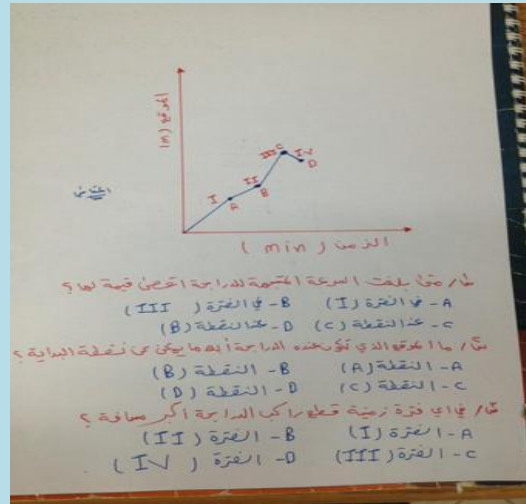 الموقع (m)
III C IV
D
II
B
I
A
الزمن ( min )
س/ متى بلغت السرعة المتجهة للدراجة اقصى قيمة لها ؟
A - في الفترة (I) B - في الفترة ( III )
C - عند النقطة (C) D - عند النقطة (B)
س/ ما الموقع الذي تكون عنده الدراجة أبعد ما يمكن عن نقطة البداية ؟
A - النقطة (A) B - النقطة (B)
C - النقطة (C) D - النقطة (D)
س/ في اي فترة زمنية قطع راكب الدراجة أكبر مسافة ؟
A - الفترة (I) B - الفترة (II)
C - الفترة (III) D - الفترة ( IV )